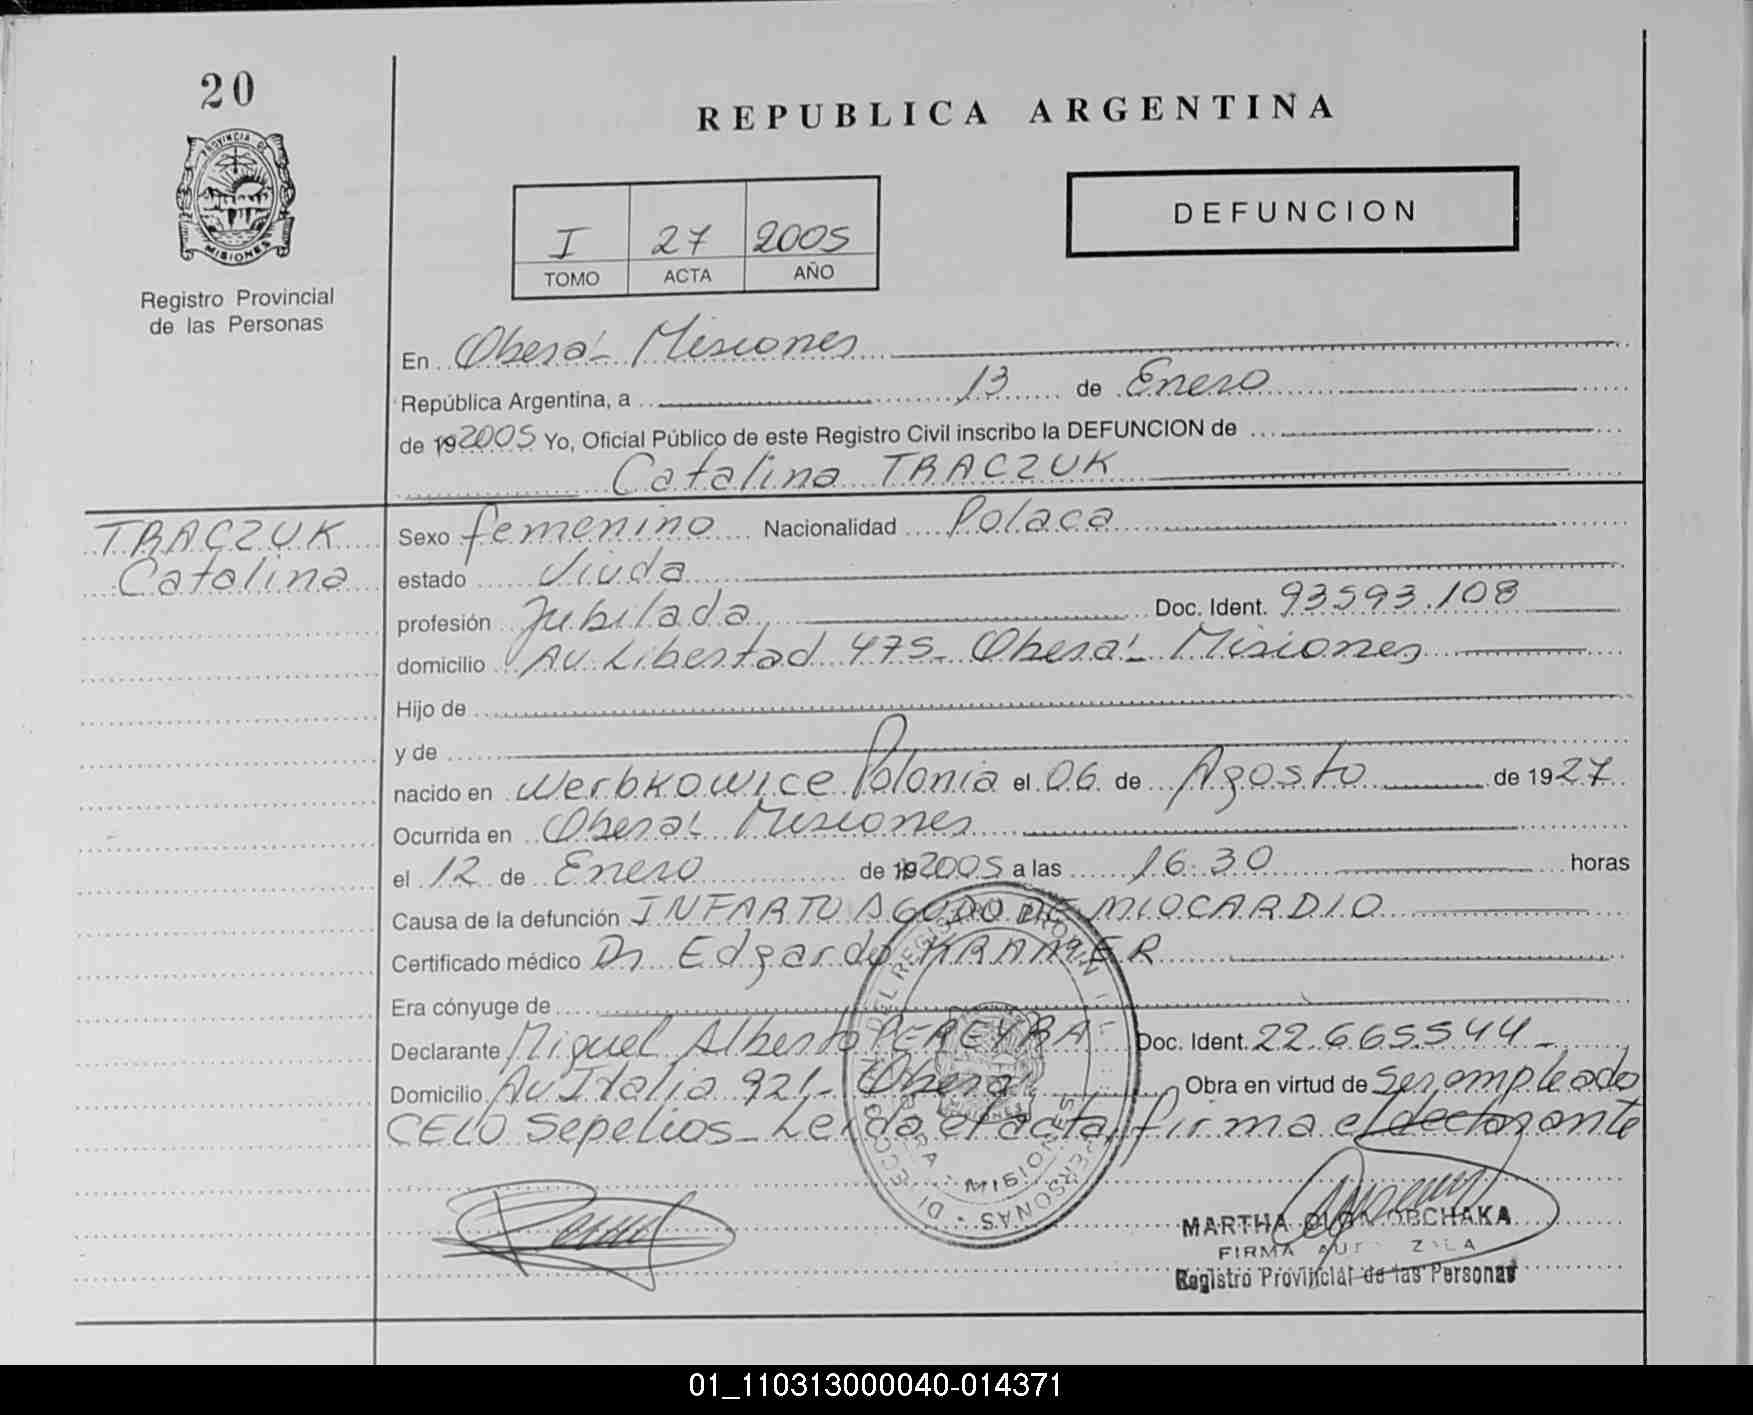 20
REPUBLICA ARGENTINA
PROVINCIA DE
MISIONES
DEFUNCION
I 27 2005
TOMO ACTA AÑO
Registro Provincial
de las Personas
En Oberá - Misiones
República Argentina, a 13 de Enero
de 19 2005 Yo, Oficial Público de este Registro Civil inscribo la DEFUNCION de
Catalina TRACZUK
TRACZUK
Catalina
Sexo femenino Nacionalidad Polaca
estado Viuda
profesión Jubilada Doc. Ident. 93593.108
domicilio Av. Libertad 475 - Oberá - Misiones
Hijo de
y de
nacido en Werbkowice Polonia el 06 de Agosto de 1927
Ocurrida en Oberá - Misiones
el 12 de Enero de 19 2005 a las 16.30 horas
Causa de la defunción INFARTO AGUDO DE MIOCARDIO
Certificado médico Dr. Edgardo KRAMER
Era cónyuge de
Declarante Miguel Alberto PEREYRA Doc. Ident. 22.665.544 -
Domicilio Av Italia 921 - Oberá Obra en virtud de ser empleado
CELO Sepelios - Leída el acta, firma el declarante
DEL REGISTRO PROVIN
PERSONAS
MISIONES
MARTHA OBCHAKA
FIRMA
Registro Provincial de las Personas
01_110313000040-014371